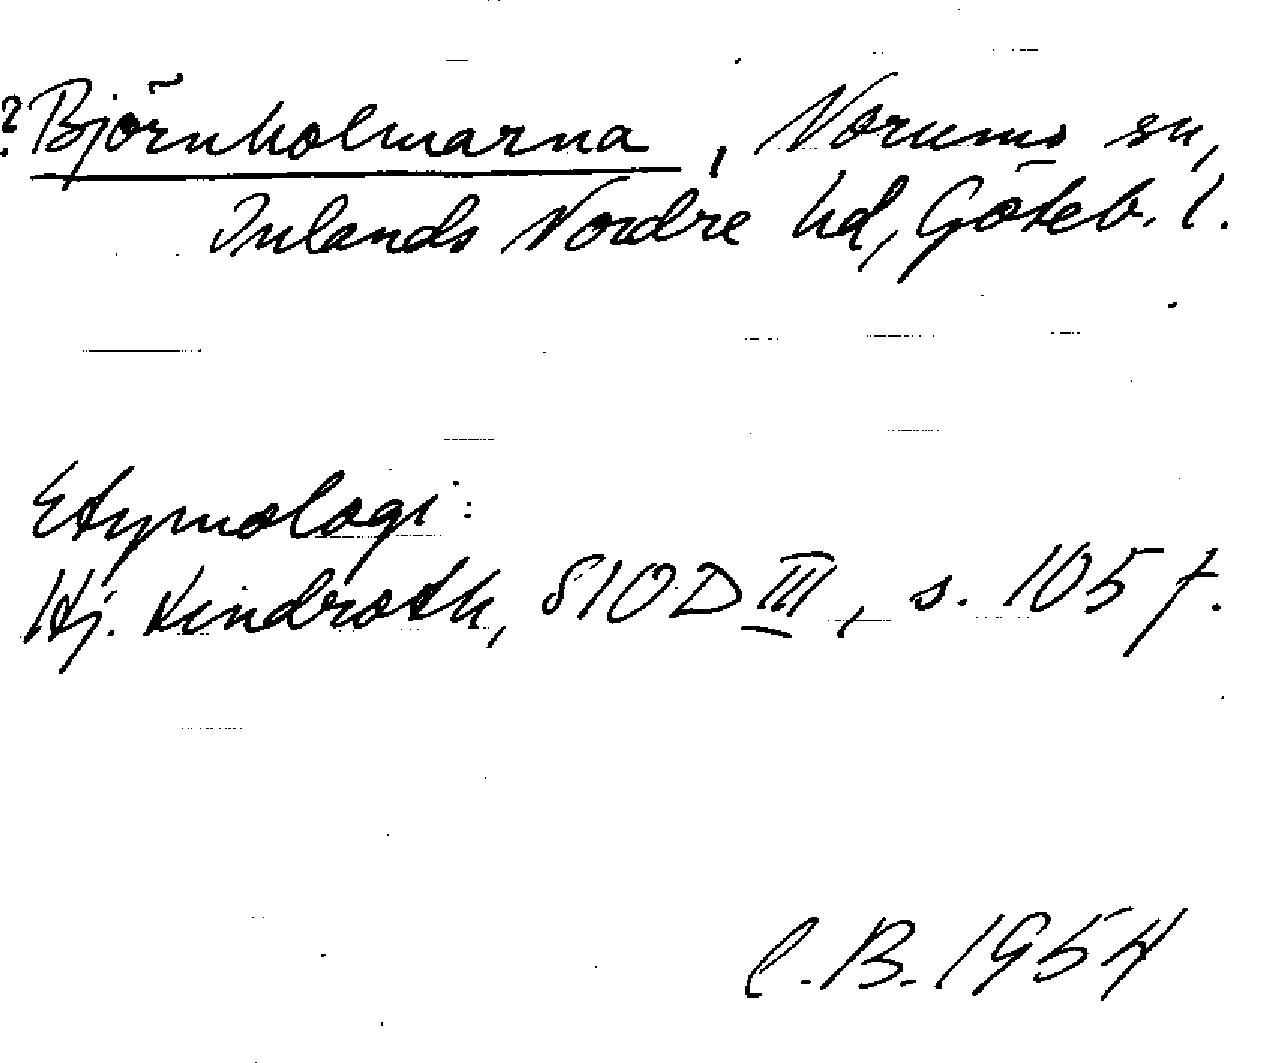 ? Björnholmarna, Norums sn,
Inlands Nordre hd, Göteb. l.
Etymologi:
Hj. Lindroth, GIOD III, s. 105 f.
C.B. 1954